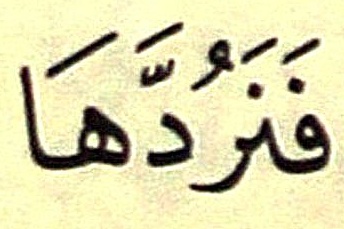 فَنَرُدَّهَا